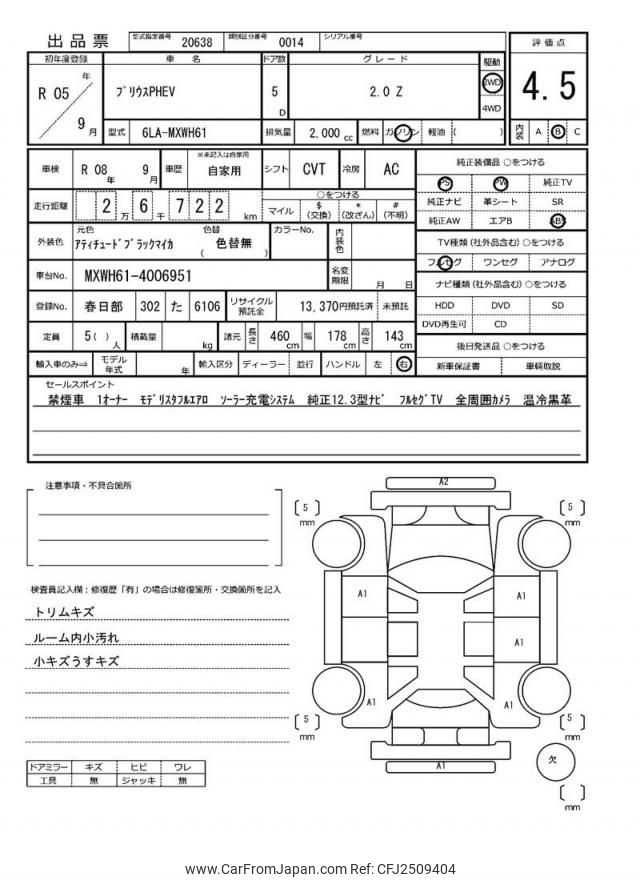 出品票 型式指定番号 20638 類別区分番号 0014 シリアル番号
初年度登録 車名 ドア数 グレード 駆動 評価点
R 05 年 9 月 プリウスPHEV 5 D 2.0 Z 2WD 4WD 4.5
型式 6LA-MXWH61 排気量 2,000 cc 燃料 ガソリン 軽油 ( ) 内装 A B C
車検 R 08 年 9 月 車歴 ※未記入は自家用 自家用 シフト CVT 冷房 AC
純正装備品 ○をつける
PS PW 純正TV
純正ナビ 革シート SR
純正AW エアB ABS
走行距離 2 万 6 千 7 2 2 km
○をつける
マイル $ (交換) * (改ざん) # (不明)
外装色 元色 アティチュードブラックマイカ 色替 ( 色替無 ) カラーNo. 内装色
TV種類 (社外品含む) ○をつける
フルセグ ワンセグ アナログ
車台No. MXWH61-4006951 名変期限 月 日
ナビ種類 (社外品含む) ○をつける
HDD DVD SD
DVD再生可 CD
登録No. 春日部 302 た 6106 リサイクル預託金 13,370円預託済 未預託
定員 5 ( ) 人 積載量 kg 諸元 長さ 460 cm 幅 178 cm 高さ 143 cm
後日発送品 ○をつける
新車保証書 車輌取説
輸入車のみ⇒ モデル年式 年 輸入区分 ディーラー 並行 ハンドル 左 右
セールスポイント
禁煙車 1オーナー モデリスタフルエアロ ソーラー充電システム 純正12.3型ナビ フルセグTV 全周囲カメラ 温冷黒革
注意事項・不具合箇所
検査員記入欄:修復歴「有」の場合は修復箇所・交換箇所を記入
トリムキズ
ルーム内小汚れ
小キズうすキズ
ドアミラー キズ ヒビ ワレ
工具 無 ジャッキ 無
A2
5 mm
5 mm
A1
A1
A1
A1
A1
5 mm
5 mm
A1
欠
mm
www.CarFromJapan.com Ref: CFJ2509404